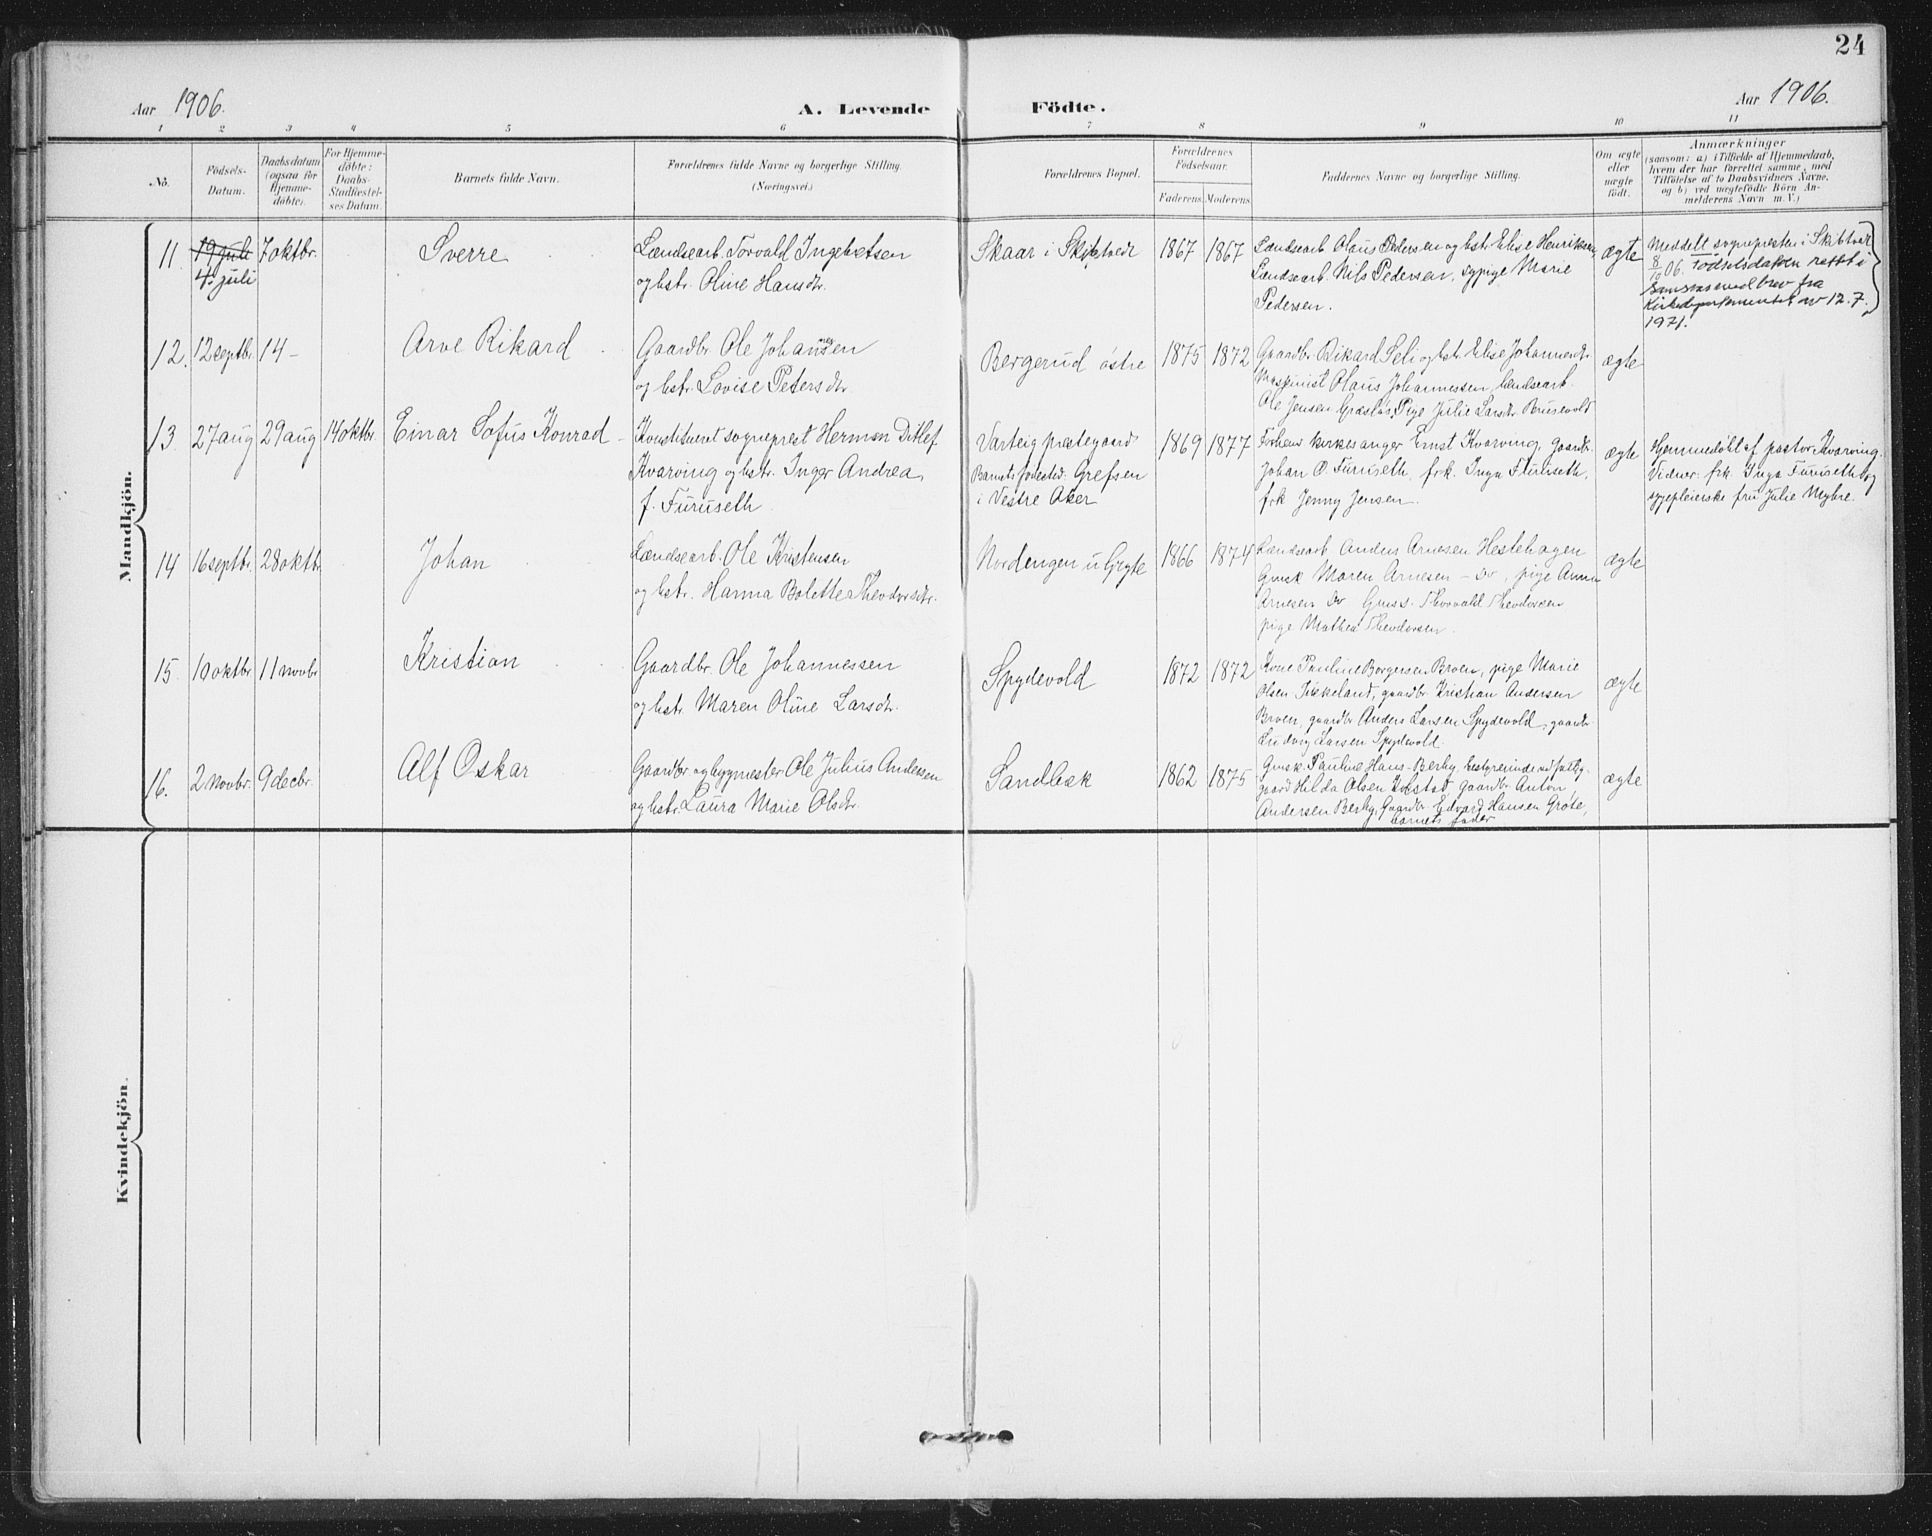 24
Aar 1906.
A. Levende Födte.
Aar 1906.
1 2 3 4 5 6 7 8 9 10 11
No.
Födsels-
Datum.
Daabsdatum
(ogsaa for
Hjemme-
döbte).
For Hjemme-
döbte:
Daabs-
Stadfæstel-
ses Datum.
Barnets fulde Navn.
Forældrenes fulde Navne og borgerlige Stilling.
(Næringsvei.)
Forældrenes Bopæl.
Forældrenes
Födselsaar.
Faderens Moderens
Faddernes Navne og borgerlige Stilling.
Om ægte
eller
uægte
födt.
Anmærkninger
(saasom: a) i Tilfælde af Hjemmedaab,
hvem der har forrettet samme, med
Tilföielse af to Daabsvidners Navne,
og b) ved uægtefödte Börn An-
melderens Navn m. V.)
Mandkjön.
11. 19 juli 7 oktbr. Sverre
4. juli
Lændsearb. Torvald Ingebretsen
og hstr. Oline Hansdr.
Skaar i Skiptvedt 1867 1867
Lændsearb. Olaus Pedersen og hstr. Elise Henriksen,
Lændsearb. Nils Pedersen, sypige Marie
Pedersen.
ægte
Meddelt sognepresten i Skibtvet
8/10 06. Fødselsdatoen rettet i
samsvar med brev fra
Kirkedepartementet av 12.7.
1971.
12. 12 septbr. 14 - Arve Rikard
Gaardbr. Ole Johannesen
og hstr. Lovise Petersdr.
Bergerud østre 1875 1872
Gaardbr. Rikard Seli og hstr. Elise Johannesdr.
Maskinist Olaus Johannessen, Lændsearb.
Ole Jensen Græslös, Pige Julie Larsdr. Brusevold
ægte
13 27 aug 29 aug 14 oktbr. Einar Sofus Konrad
Konstitueret sogneprest Herman Ditlef
Kvarving og hstr. Inger Andrea
f. Furuseth
Varteig præstegaard
Barnets fødested: Grefsen
i Vestre Aker
1869 1877
Forhenv. kirkesanger Ernst Kvarving, gaardbr.
Johan O. Furuseth, frk. Inga Furuseth,
frk Jenny Jensen.
ægte
Hjemmedöbt af pastor Kvarving.
Vidner: frk. Inga Furuseth og
sygepleierske fru Julie Myhre.
14 16 septbr. 28 oktbr. Johan
Lændsearb. Ole Kristensen
og hstr. Hanna Bolette Theodorsdr.
Nordengen u. Gryte 1866 1874
Lændsearb Anders Arnesen Hestehagen
Gmsk Maren Arnesen – Do, pige Anna
Arnesen Do Gmss. Thorvald Theodorsen
pige Mathea Theodorsen.
ægte
15. 10 oktbr 11 novbr Kristian
Gaardbr. Ole Johannessen
og hstr. Maren Oline Larsdr.
Spydevold 1872 1872
Kone Pauline Borgersen Broen, pige Marie
Olsen Tikkeland, gaardbr. Kristian Andersen
Broen, gaardbr Anders Larsen Spydevold, gaardbr
Ludvig Larsen Spydevold.
ægte
16. 2 novbr. 9 decbr. Alf Oskar
Gaardbr og bygmester Ole Julius Andersen
og hstr. Laura Marie Olsdr.
Sandbæk 1862 1875
Gmsk. Pauline Hans- Berby, Bestyrerinde ved fattig-
gaard Hilda Olsen Ivestad, gaardbr Anton
Andersen Berby, Gaardbr. Edvard Hansen Grøte,
barnets fader
ægte
Kvindekjön.